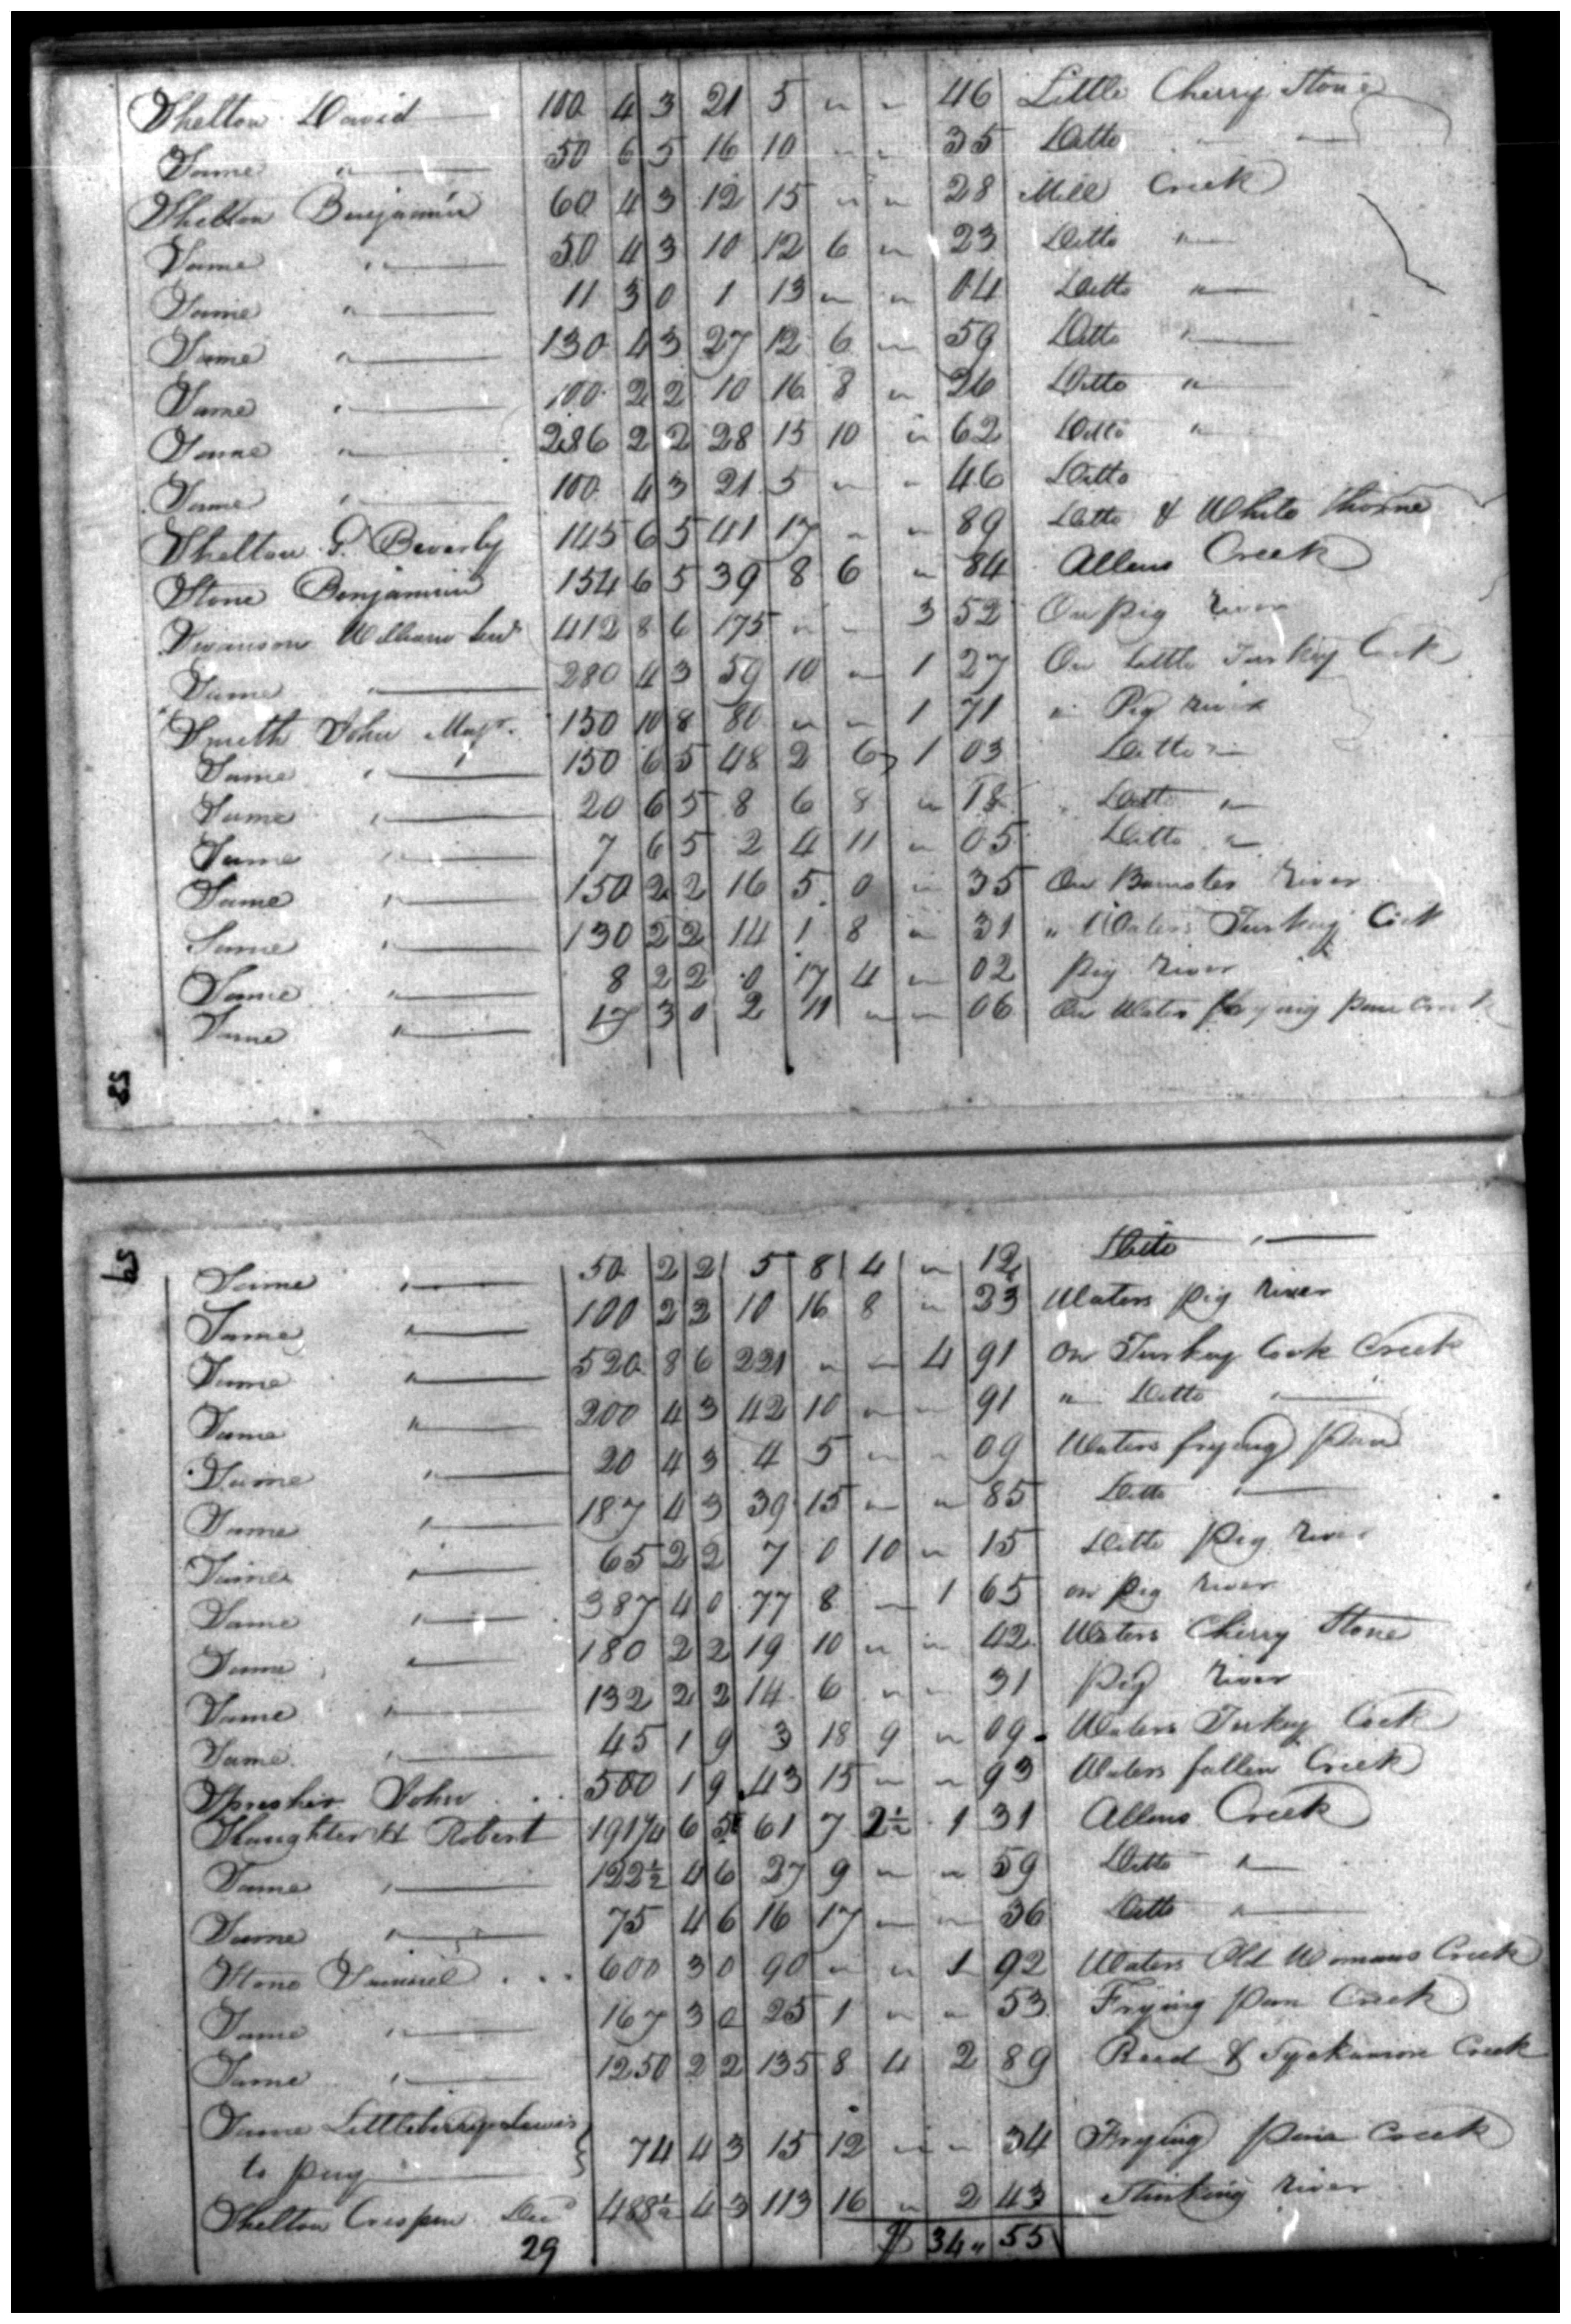 Shelton David 100 4 3 21 5 " " 46 Little Cherry Stone
Same " 50 6 5 16 10 " " 35 Ditto "
Shelton Benjamin 60 4 3 12 15 " " 28 Mill Creek
Same " 50 4 3 10 12 6 " 23 Ditto "
Same " 11 3 0 1 13 " " 04 Ditto "
Same " 130 4 3 27 12 6 " 59 Ditto "
Same " 100 2 2 10 16 8 " 26 Ditto "
Same " 286 2 2 28 15 10 " 62 Ditto "
Same " 100 4 3 21 5 " " 46 Ditto
Shelton G. Beverly 145 6 5 41 17 " " 89 Ditto & White Thorne
Stone Benjamin 154 6 5 39 8 6 " 84 Allens Creek
Swanson William Senr 412 8 6 175 " " 3 52 On pig River
Same " 280 4 3 59 10 " 1 27 On Little Turkey Cock
Smith John Majr. 150 10 8 80 " " 1 71 " Pig River
Same " 150 6 5 48 2 6 1 03 Ditto "
Same " 20 6 5 8 6 8 " 18 " Ditto "
Same " 7 6 5 2 4 11 " 05 Ditto "
Same " 150 2 2 16 5 0 " 35 On Banister River
Same " 130 2 2 14 1 8 " 31 " Waters Turkey Cock
Same " 8 2 2 0 17 4 " 02 pig River
Same " 17 3 0 2 11 " " 06 On Waters frying pan Creek
28
29
Same " 50 2 2 5 8 4 " 12 Ditto "
Same " 100 2 2 10 16 8 " 23 Waters pig River
Same " 520 8 6 221 " " 4 91 On Turkey Cock Creek
Same " 200 4 3 42 10 " " 91 " Ditto "
Same " 20 4 3 4 5 " " 09 Waters frying Pan
Same " 187 4 3 39 15 " " 85 Ditto "
Same " 65 2 2 7 0 10 " 15 Ditto Pig River
Same " 387 4 0 77 8 " 1 65 on pig River
Same " 180 2 2 19 10 " " 42 Waters Cherry Stone
Same " 132 2 2 14 6 " " 31 Pig River
Same " 45 1 9 3 18 9 " 09 Waters Turkey Cock
John 500 1 9 43 15 " " 93 Waters fallen Creek
Slaughter H Robert 191 1/4 6 5 61 7 2 1/2 1 31 Allens Creek
Same " 122 1/2 4 6 27 9 " " 59 Ditto "
Same " 75 4 6 16 17 " " 36 Ditto "
Stone Samuel 600 3 0 90 " " 1 92 Waters Old Womans Creek
Same " 167 3 0 25 1 " " 53 Frying Pan Creek
Same " 1250 2 2 135 8 4 2 89 Reed & Syckamore Creek
Same Littleberry Lewis
to pay 74 4 3 15 12 " " 34 Frying Pan Creek
Shelton Crispen Decd 488 1/2 4 3 113 16 " 2 43 Stinking River
29 $ 34 " 55